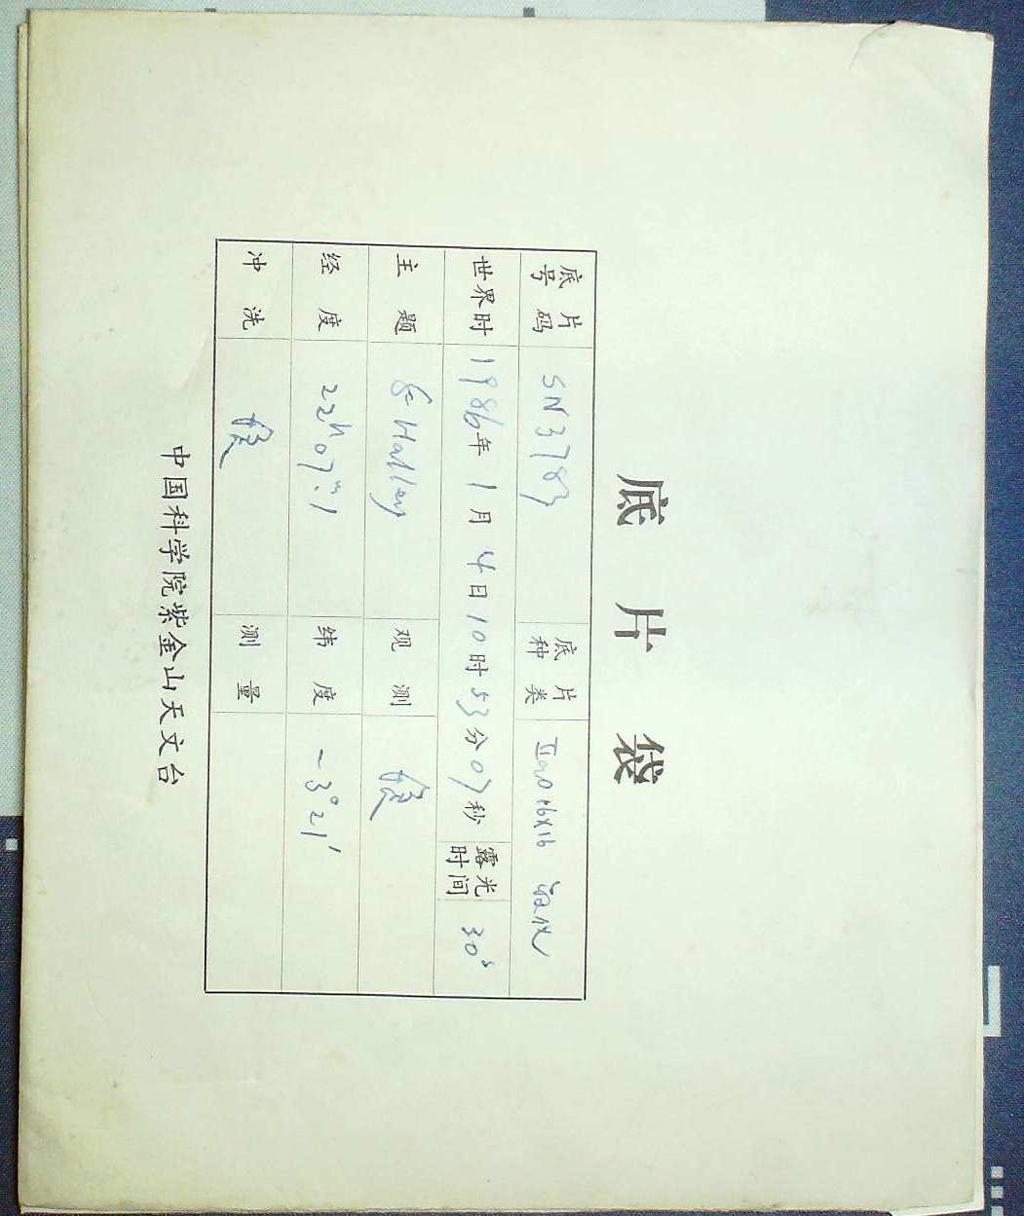 底片袋
底片号码 SN3783 底片种类 IIaO 16×16
世界时 1986年1月4日10时53分07秒 露光时间 30s
主题 Halley 观测
经度 22h07m.1 纬度 -3°21′
冲洗 测量
中国科学院紫金山天文台